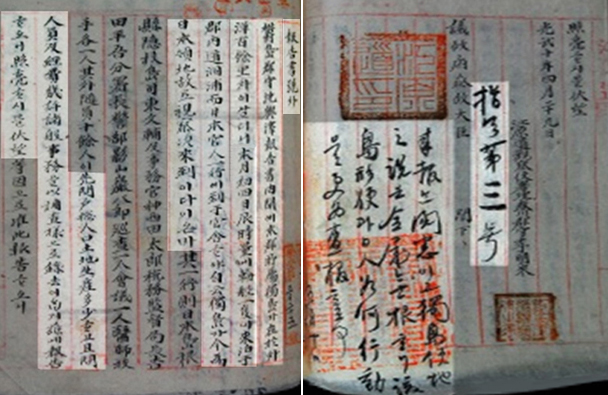 報告書號外
鬱島郡守沈興澤報告書內開에本郡所屬獨島가在於外
洋百餘里外이ᄉᆞᆸ더니本月初四日辰時量에輪船一雙이來泊于
郡內道洞浦而日本官人一行이到于官舍ᄒᆞ야自云獨島가今爲
日本領地故로視察次來到이다이온바其一行則日本島根
縣隱技島司東文輔及事務官神西田太郎稅務監督局長吉
田平吾分署長警部影山巖八郎巡查一人會議一人醫師技
手各一人其外隨員十餘人이先問戶摠人口土地生産多少ᄒᆞ고且問
人員及經費幾許諸般事務을以調査樣으로錄去이ᄋᆞᆸ기玆에報告
ᄒᆞ오니照亮ᄒᆞ시믈伏望等因으로准此報告ᄒᆞ오니
照亮ᄒᆞ시믈伏望
光武十年四月二十九日
江原道觀察使署理春川郡守李明來
議政府參政大臣 閣下
指令第三号
來報는閱悉이고獨島領地
之說은全屬無根ᄒᆞ나該
島形便과日人如何行動
을更爲査報ᄒᆞᆯ事